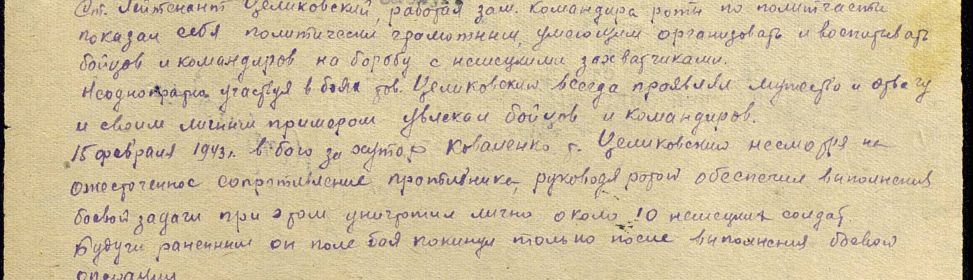 Ст. Лейтенант Целиковский, работая зам. командира роты по политчасти
показал себя политически грамотным, умеющим организовать и воспитывать
бойцов и командиров на борьбу с немецкими захватчиками.
Неоднократно участвуя в боях тов. Целиковский всегда проявлял мужество и отвагу
и своим личным примером увлекал бойцов и командиров.
15 февраля 1943 г. в бою за хутор Коваленко т. Целиковский несмотря на
ожесточенное сопротивление противника, руководя ротой обеспечил выполнения
боевой задачи при этом уничтожил лично около 10 немецких солдат.
Будучи раненным он поле боя покинул только после выполнения боевой
операции